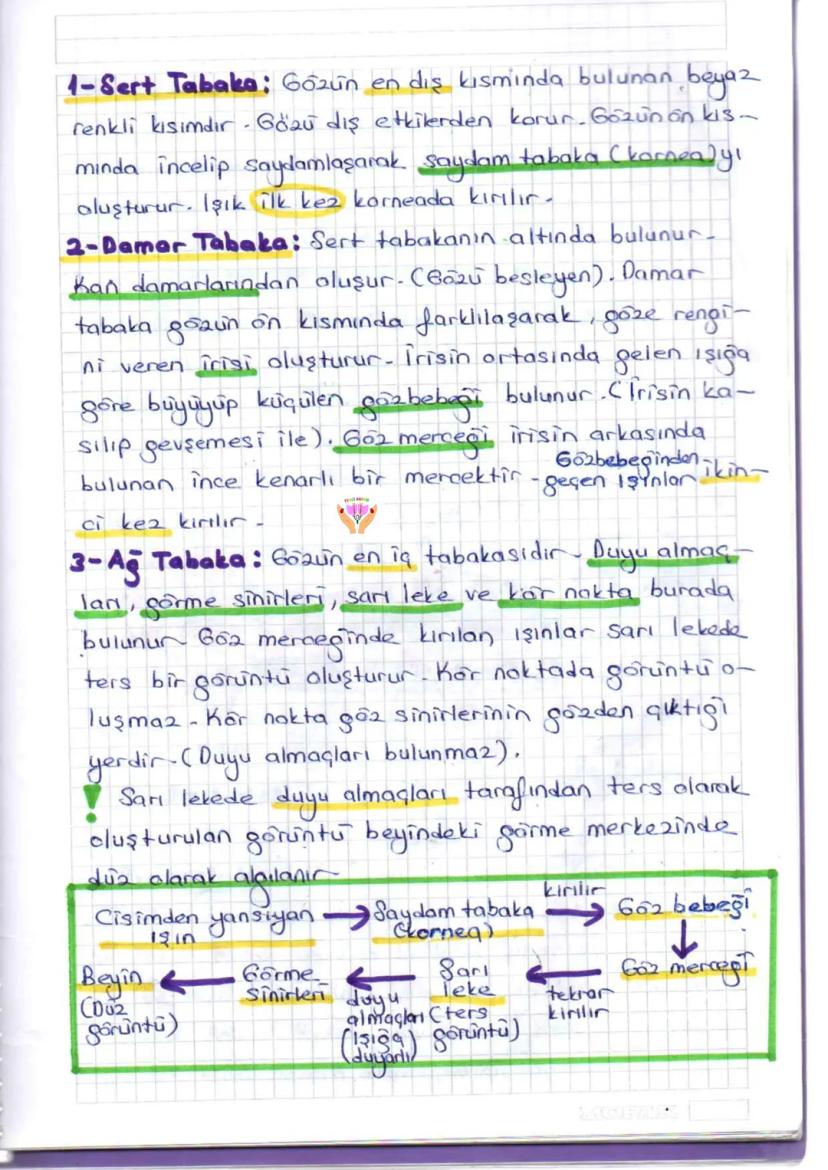 1-Sert Tabaka: Gözün en dış kısmında bulunan beyaz
renkli kısımdır. Gözü dış etkilerden korur. Gözün ön kıs-
mında incelip saydamlaşarak saydam tabaka (kornea)yı
oluşturur. Işık ilk kez korneada kırılır.
2-Damar Tabaka: Sert tabakanın altında bulunur.
Kan damarlarından oluşur. (Gözü besleyen). Damar
tabaka gözün ön kısmında farklılaşarak, göze rengi-
ni veren irisi oluşturur. İrisin ortasında gelen ışığa
göre büyüyüp küçülen gözbebeği bulunur. (İrisin ka-
sılıp gevşemesi ile). Göz merceği irisin arkasında
bulunan ince kenarlı bir mercektir. Gözbebeğinden geçen ışınlar ikin-
ci kez kırılır.
3-Ağ Tabaka: Gözün en iç tabakasıdır. Duyu almaç-
ları, görme sinirleri, sarı leke ve kör nokta burada
bulunur Göz merceğinde kırılan ışınlar sarı lekede
ters bir görüntü oluşturur. Kör noktada görüntü o-
luşmaz. Kör nokta göz sinirlerinin gözden çıktığı
yerdir. (Duyu almaçları bulunmaz).
! Sarı lekede duyu almaçları tarafından ters olarak
oluşturulan görüntü beyindeki görme merkezinde
düz olarak algılanır.
Cisimden yansıyan ışın → Saydam tabaka (kornea) → kırılır Göz bebeği
↓
Göz merceği
← tekrar kırılır
Sarı leke (ters görüntü)
← duyu almaçları (ışığa duyarlı)
Görme Sinirleri
←
Beyin (Düz görüntü)